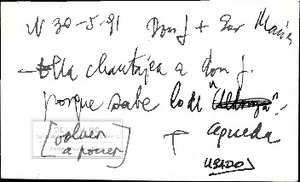 N 30-5-91 Don J + Sor María
- Ella chantajea a don J.
porque sabe lo de "
[volver a poner] + Agueda
USADO